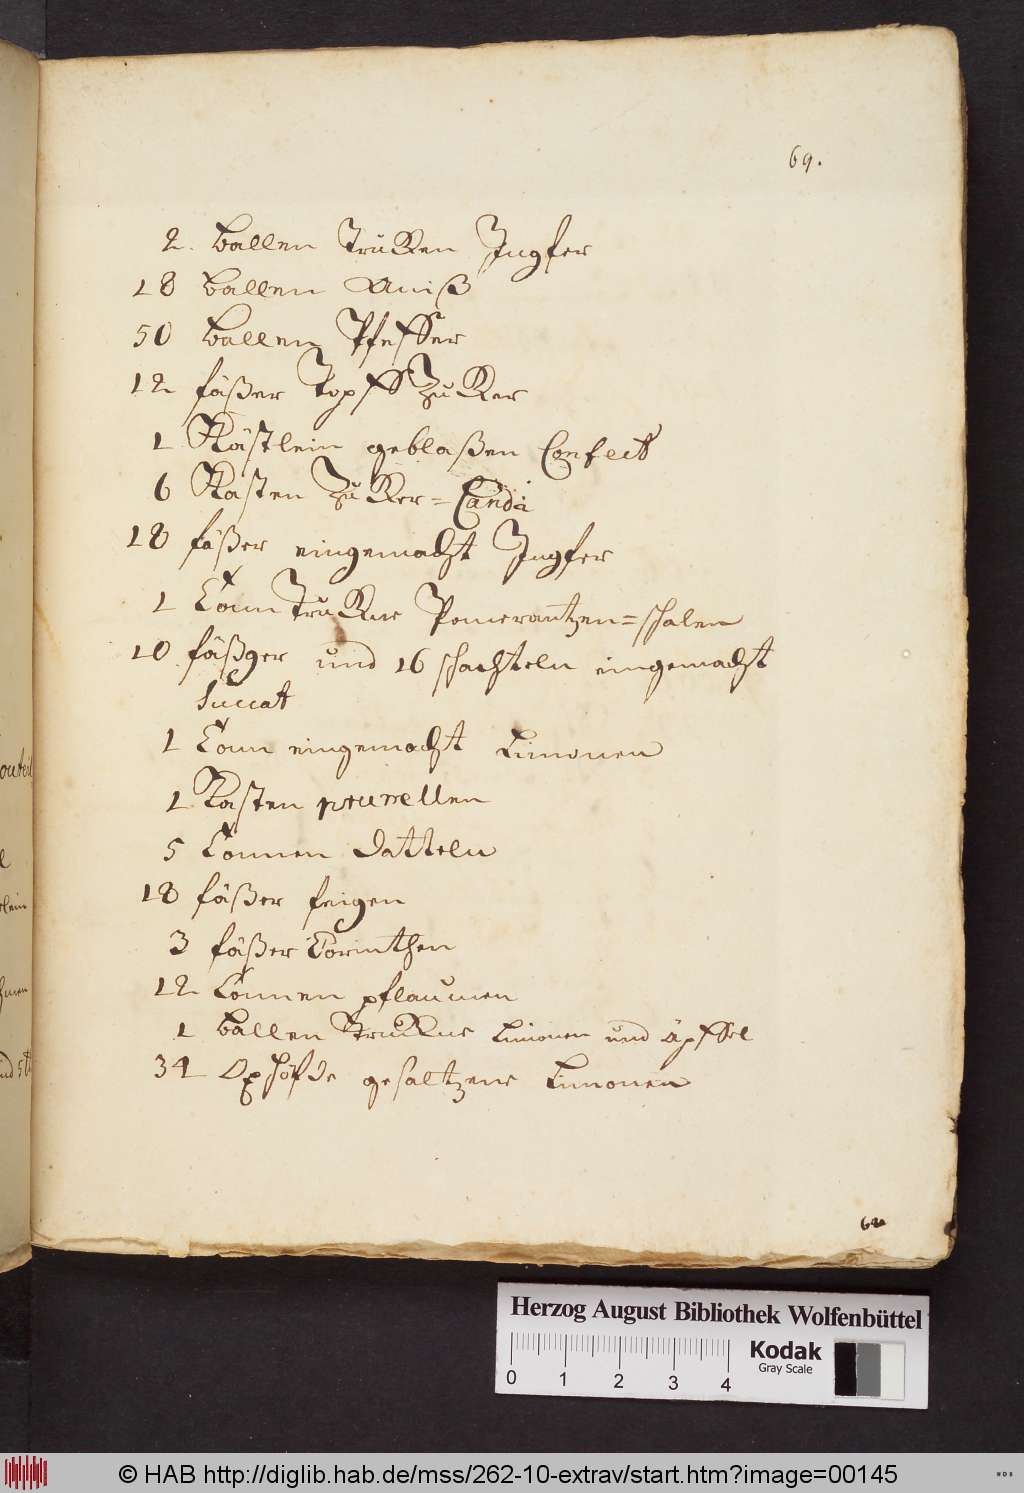 69.
2. ballen truKen Ingfer
18 ballen Aniß
50 ballen Pfeffer
12 fäßer Topff ZuKer
1 Kästlein geblaßen Confect
6 Kasten ZuKer=Candi
18 fäßer eingemacht Ingfer
1 Tonn truKne Pomerantzen=schalen
10 fäßger und 16 schachteln eingemacht
Succat
1 Tonn eingemacht Limonen
1 Kasten prunellen
5 Tonnen Datteln
18 fäßer feigen
3 fäßer Corinthen
12 Tonnen pflaumen
1 ballen truKne Limonen und äpffel
34 Oxhöfde gesaltzene Limonen
Herzog August Bibliothek Wolfenbüttel
Kodak
Gray Scale
0 1 2 3 4
© HAB http://diglib.hab.de/mss/262-10-extrav/start.htm?image=00145